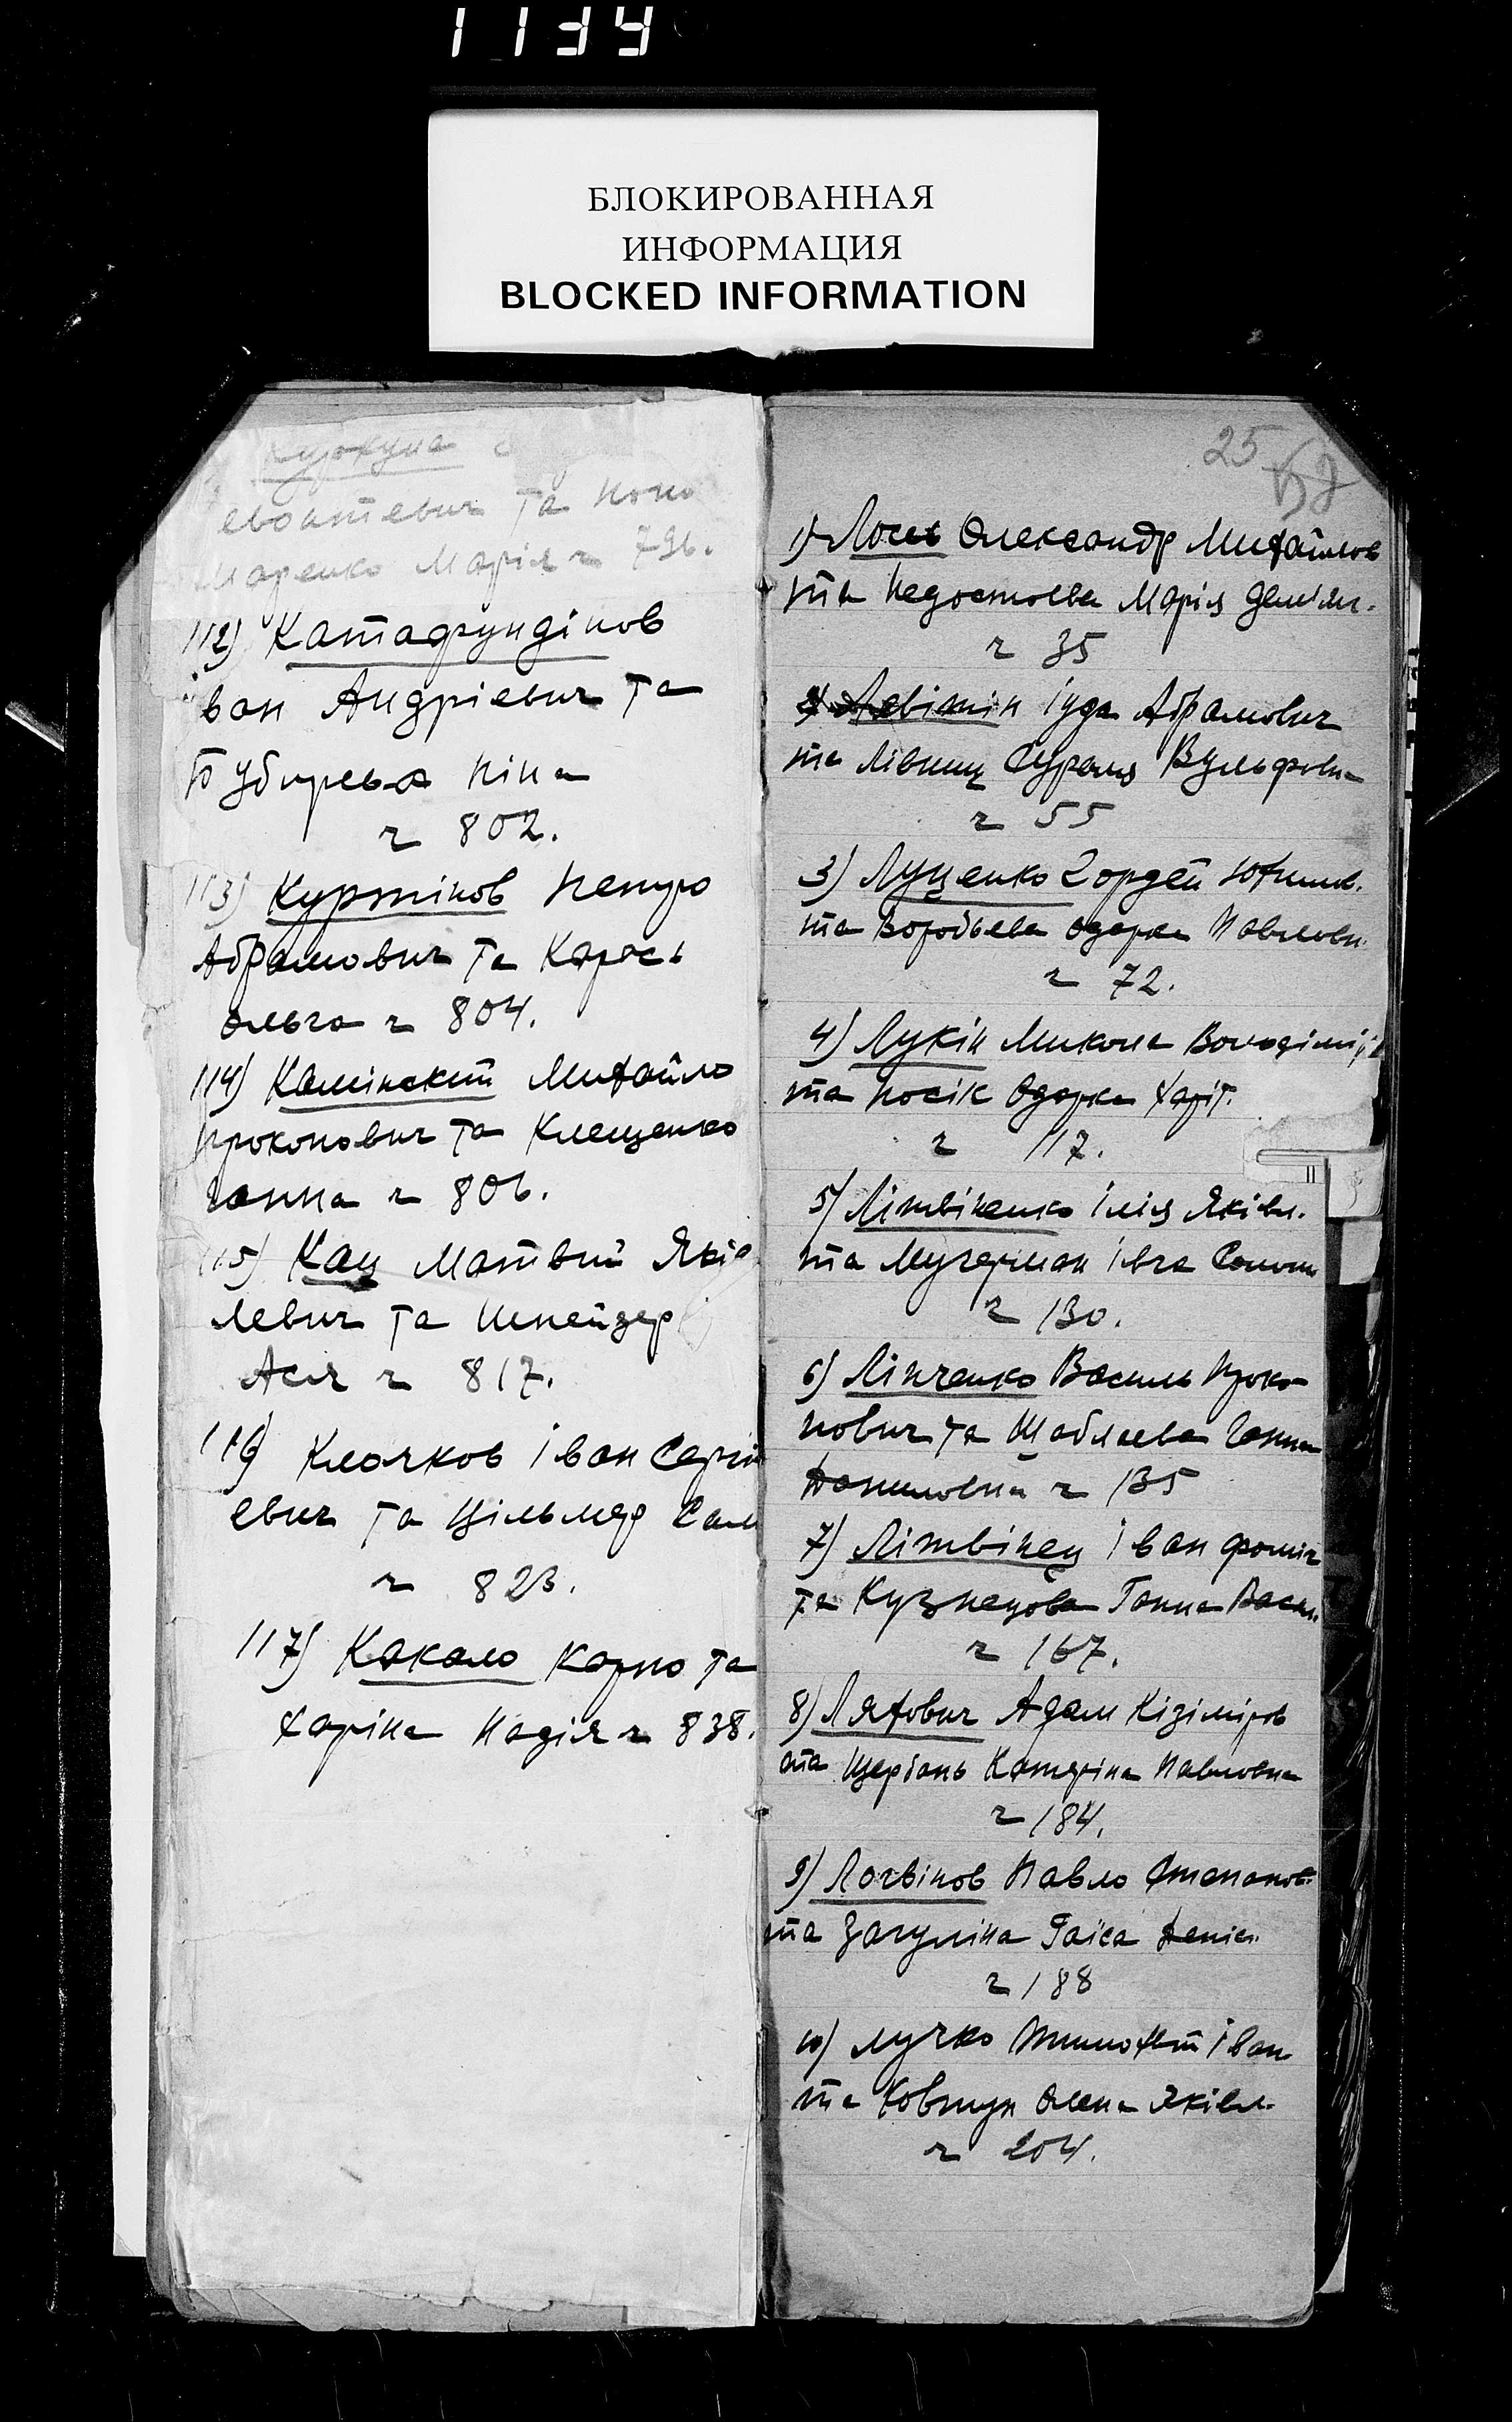 1134
БЛОКИРОВАННАЯ
ИНФОРМАЦИЯ
BLOCKED INFORMATION
та
Маренко Марія ч 796.
112) Катафундінов
Іван Андрієвич та
Бубирева Ніна
ч 802.
113) Куртінов Петро
Абрамович та Карась
Ольга ч 804.
114) Камінский Михайло
Прокопович та Клещенко
Ганна ч 806.
115) Кац Матвій Які
левич та Шнейдер
Ася ч 817.
116) Клочков Іван Сергій
евич та Цільмер
ч 823.
117) Какало Карпо та
Харіна Надія ч 838.
25
1) Лось Олександр Михайлов
та Недостоева Марія Демʼян.
ч 35
2) Левітін Іуда Абрамович
та Лівшиц Вульфовна
ч 55
3) Луценко Гордей Юхимов.
та Воробьева Одарка Павловн.
ч 72.
4) Лукін Микола Володімір
та Носік Одарка Харіт.
ч 117.
5) Літвіненко Ілія Яківл.
та Мучерман Івга
ч 130.
6) Лінченко Василь Проко
пович та Шабляева Ганна
Даниловна ч 135
7) Літвінец Іван Фоміч
та Кузнецова Ганна Васил.
ч 167.
8) Ляхович Адам Кізіміров
та Щербань Катеріна Павловна
ч 184.
9) Логвінов Павло Степанов.
та Загуліна Раїса Деніс.
ч 188
10) Лучко Тимофій Іван.
та Ковтун Олена Яківл.
ч 204.